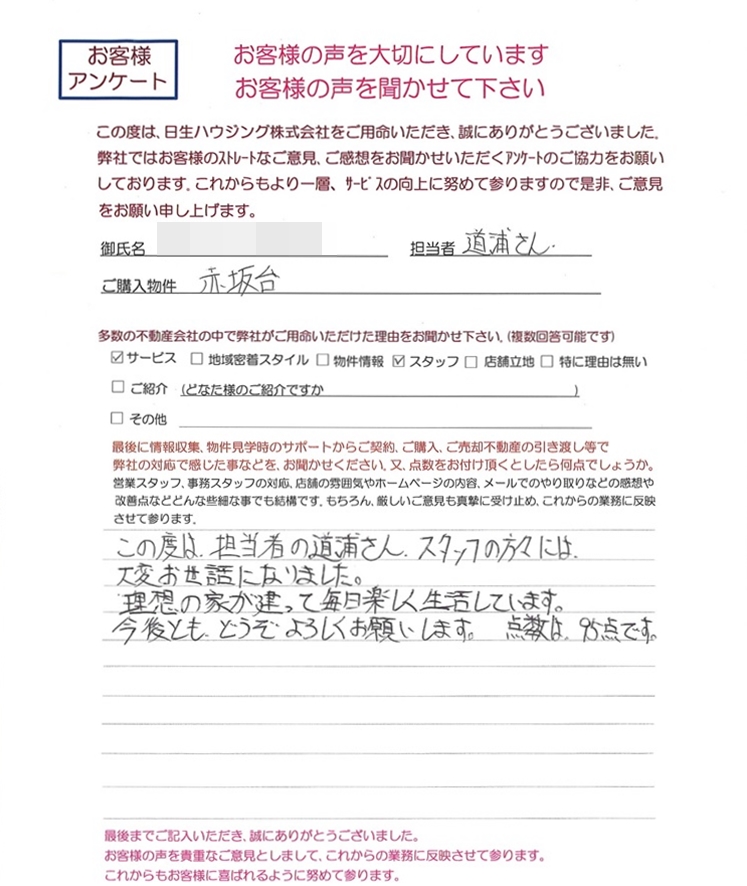 お客様
アンケート
お客様の声を大切にしています
お客様の声を聞かせて下さい
この度は、日生ハウジング株式会社をご用命いただき、誠にありがとうございました。
弊社ではお客様のｽﾄﾚｰﾄなご意見、ご感想をお聞かせいただくｱﾝｹｰﾄのご協力をお願い
しております。これからもより一層、ｻｰﾋﾞｽの向上に努めて参りますので是非、ご意見
をお願い申し上げます。
御氏名 担当者 道浦さん.
ご購入物件 赤坂台
多数の不動産会社の中で弊社がご用命いただけた理由をお聞かせ下さい。(複数回答可能です)
☑サービス □地域密着スタイル □物件情報 ☑スタッフ □店舗立地 □特に理由は無い
□ご紹介 (どなた様のご紹介ですか )
□その他
最後に情報収集、物件見学時のサポートからご契約、ご購入、ご売却不動産の引き渡し等で
弊社の対応で感じた事などを、お聞かせください。又、点数をお付け頂くとしたら何点でしょうか。
営業スタッフ、事務スタッフの対応、店舗の雰囲気やホームページの内容、メールでのやり取りなどの感想や
改善点などどんな些細な事でも結構です。もちろん、厳しいご意見も真摯に受け止め、これからの業務に反映
させて参ります。
この度は、担当者の道浦さん、スタッフの方々には、
大変お世話になりました。
理想の家が建って毎日楽しく生活しています。
今後とも、どうぞよろしくお願いします。 点数は、95点です。
最後までご記入いただき、誠にありがとうございました。
お客様の声を貴重なご意見としまして、これからの業務に反映させて参ります。
これからもお客様に喜ばれるように努めて参ります。